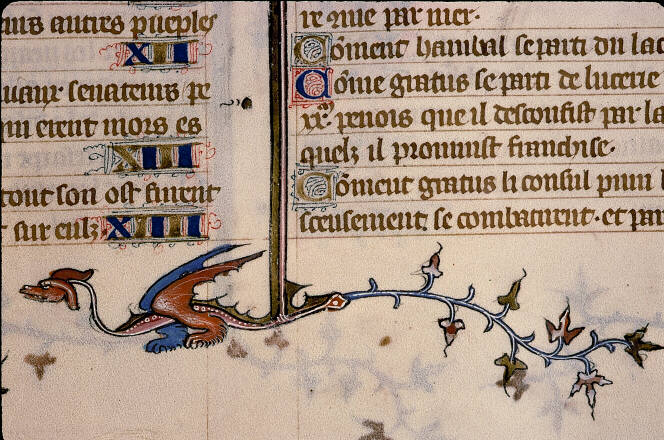 eurs autres pueples
XII
ucaux senateurs pe
qui erent mors es
XIII
tout son ost furent
sur eulz XIIII
re nue par mer.
Cõment hanibal se parti du lac
Cõme gratus se parti de lucerie
penois que il desconfist par la
quelz il promist franchise.
Cõment gratus li consul
se combatirent. et par